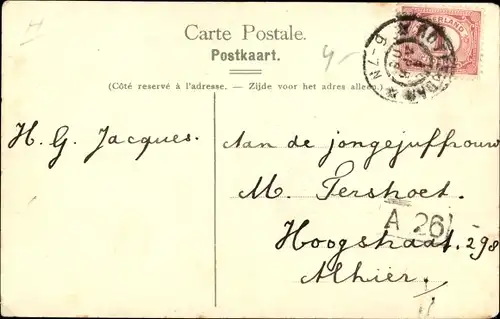 H
Carte Postale.
Postkaart.
4-
(Côté reservé à l'adresse. — Zijde voor het adres alleen.)
NEDERLAND
6-7N
H. G. Jacques.
Aan de jongejuffrouw
M. Pershoet.
A 26
Hoogstraat. 298
Alhier.